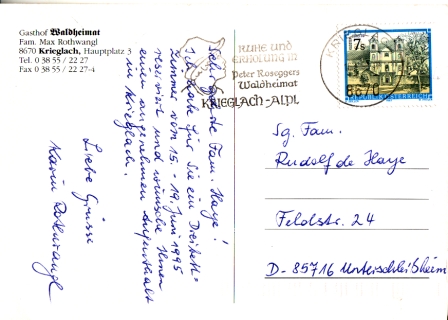 Gasthof Waldheimat
Fam. Max Rothwangl
8670 Krieglach, Hauptplatz 3
Tel. 0 38 55 / 22 27
Fax 0 38 55 / 22 27-4
RUHE UND
ERHOLUNG IN
Peter Roseggers
Waldheimat
KRIEGLACH-ALPL
7 S
Sehr geehrte Fam. Haye!
Ich habe für Sie ein Dreibett-
zimmer vom 15. - 19. Juni 1995
reserviert und wünsche Ihnen
einen angenehmen Aufenthalt
in Krieglach.
Liebe Grüsse
Karin Rothwangl
Sg. Fam.
Rudolf de Haye
Feldstr. 24
D- 85716 Unterschleißheim